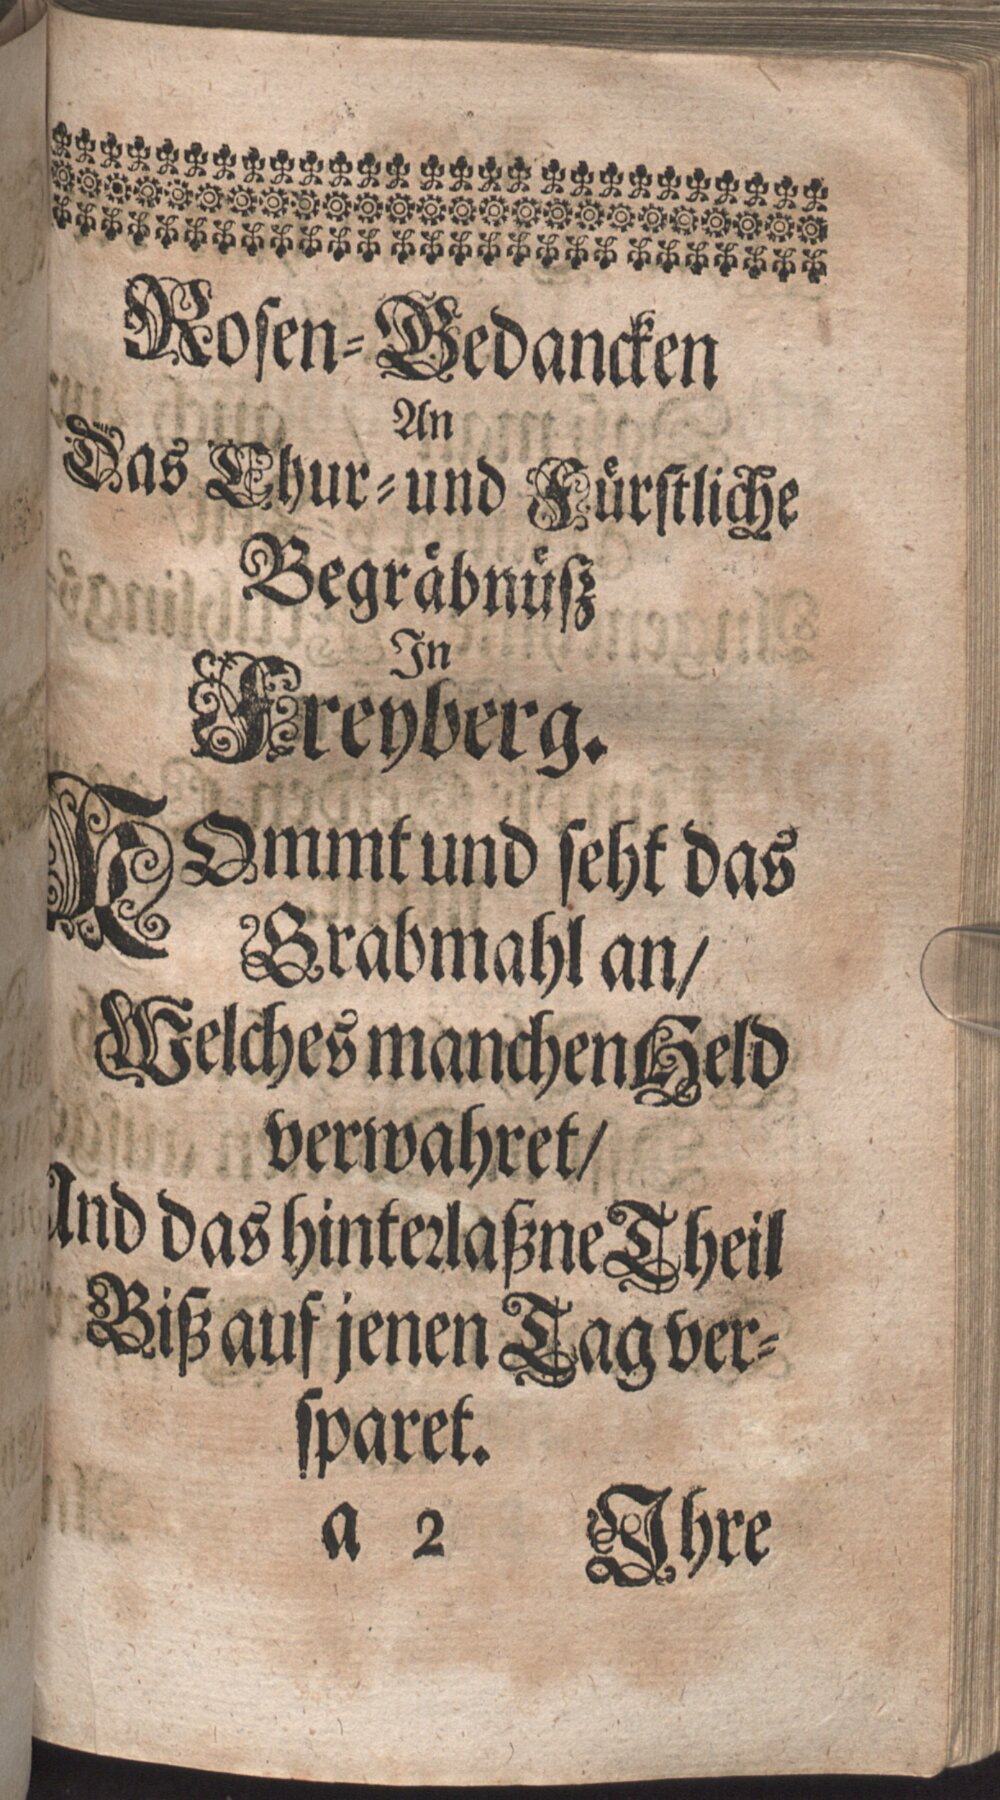 Rosen-Gedancken
An
Das Chur-und Fürstliche
Begräbnüß
In
Freyberg.
KOmmt und seht das
Grabmahl an/
Welches manchen Held
verwahret/
Und das hinterlaßne Theil
Biß auf jenen Tag ver-
sparet.
a 2 Ihre